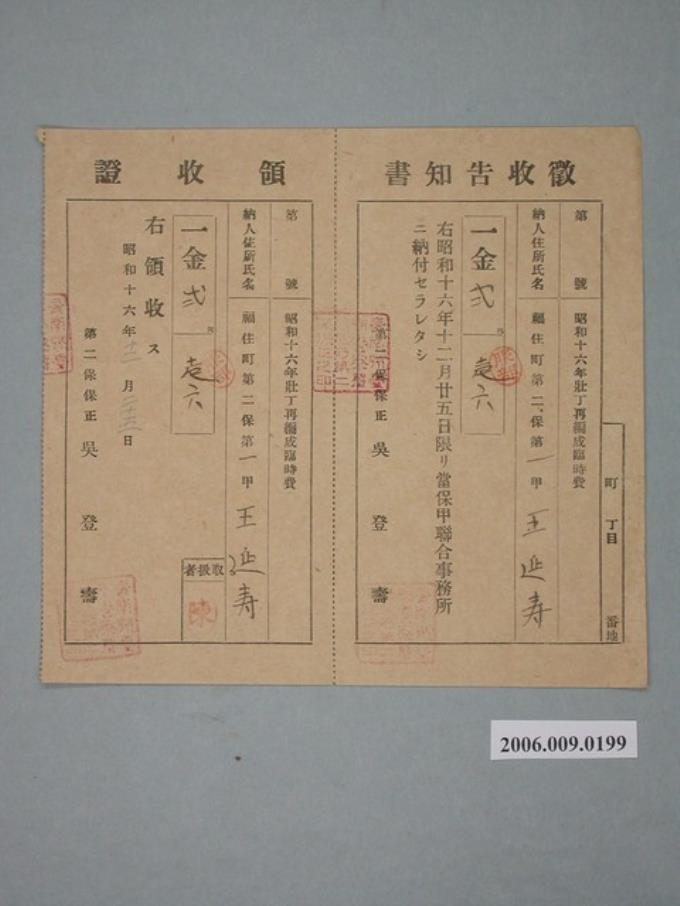 徵收告知書
町 丁目 番地
第 號 昭和十六年壯丁再編成臨時費
納人住所氏名 福住町第二保第一甲 王延寿
一金弐 壱六
右昭和十六年十二月廿五日限リ當保甲聯合事務所
ニ納付セラレタシ
第二保保正 吳登壽
領收證
第 號 昭和十六年壯丁再編成臨時費
納人住所氏名 福住町第二保第一甲 王延寿
一金弐 壱六
取扱者 陳
右領收ス
昭和十六年十二月二十三日
第二保保正 吳登壽
2006.009.0199